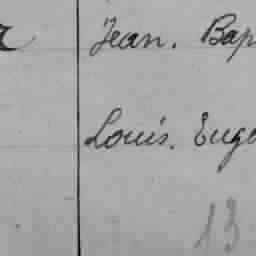 Jean. Bap
Louis. Euge
13